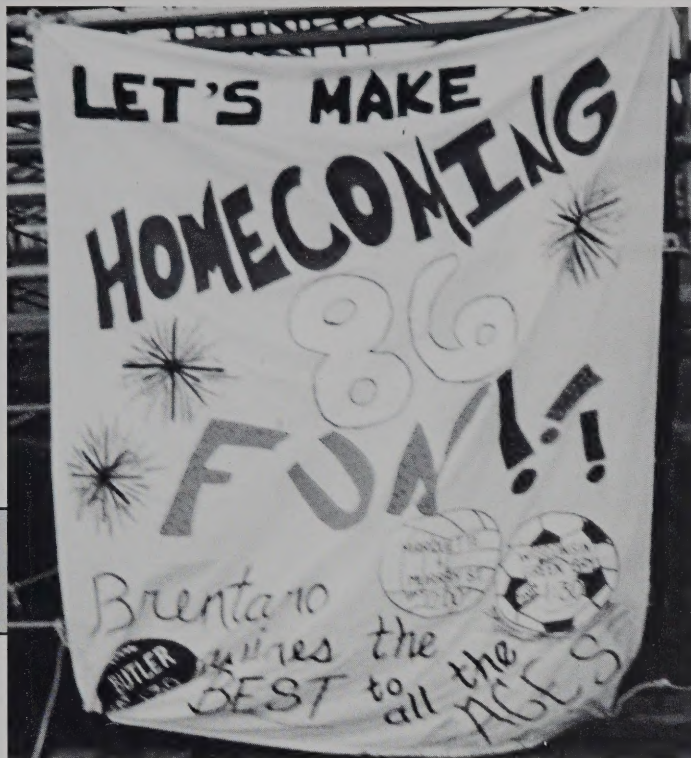 LET'S MAKE
HOMECOMING
86
FUN!!!
Brentano
the
BEST to all the
ACES
BUTLER